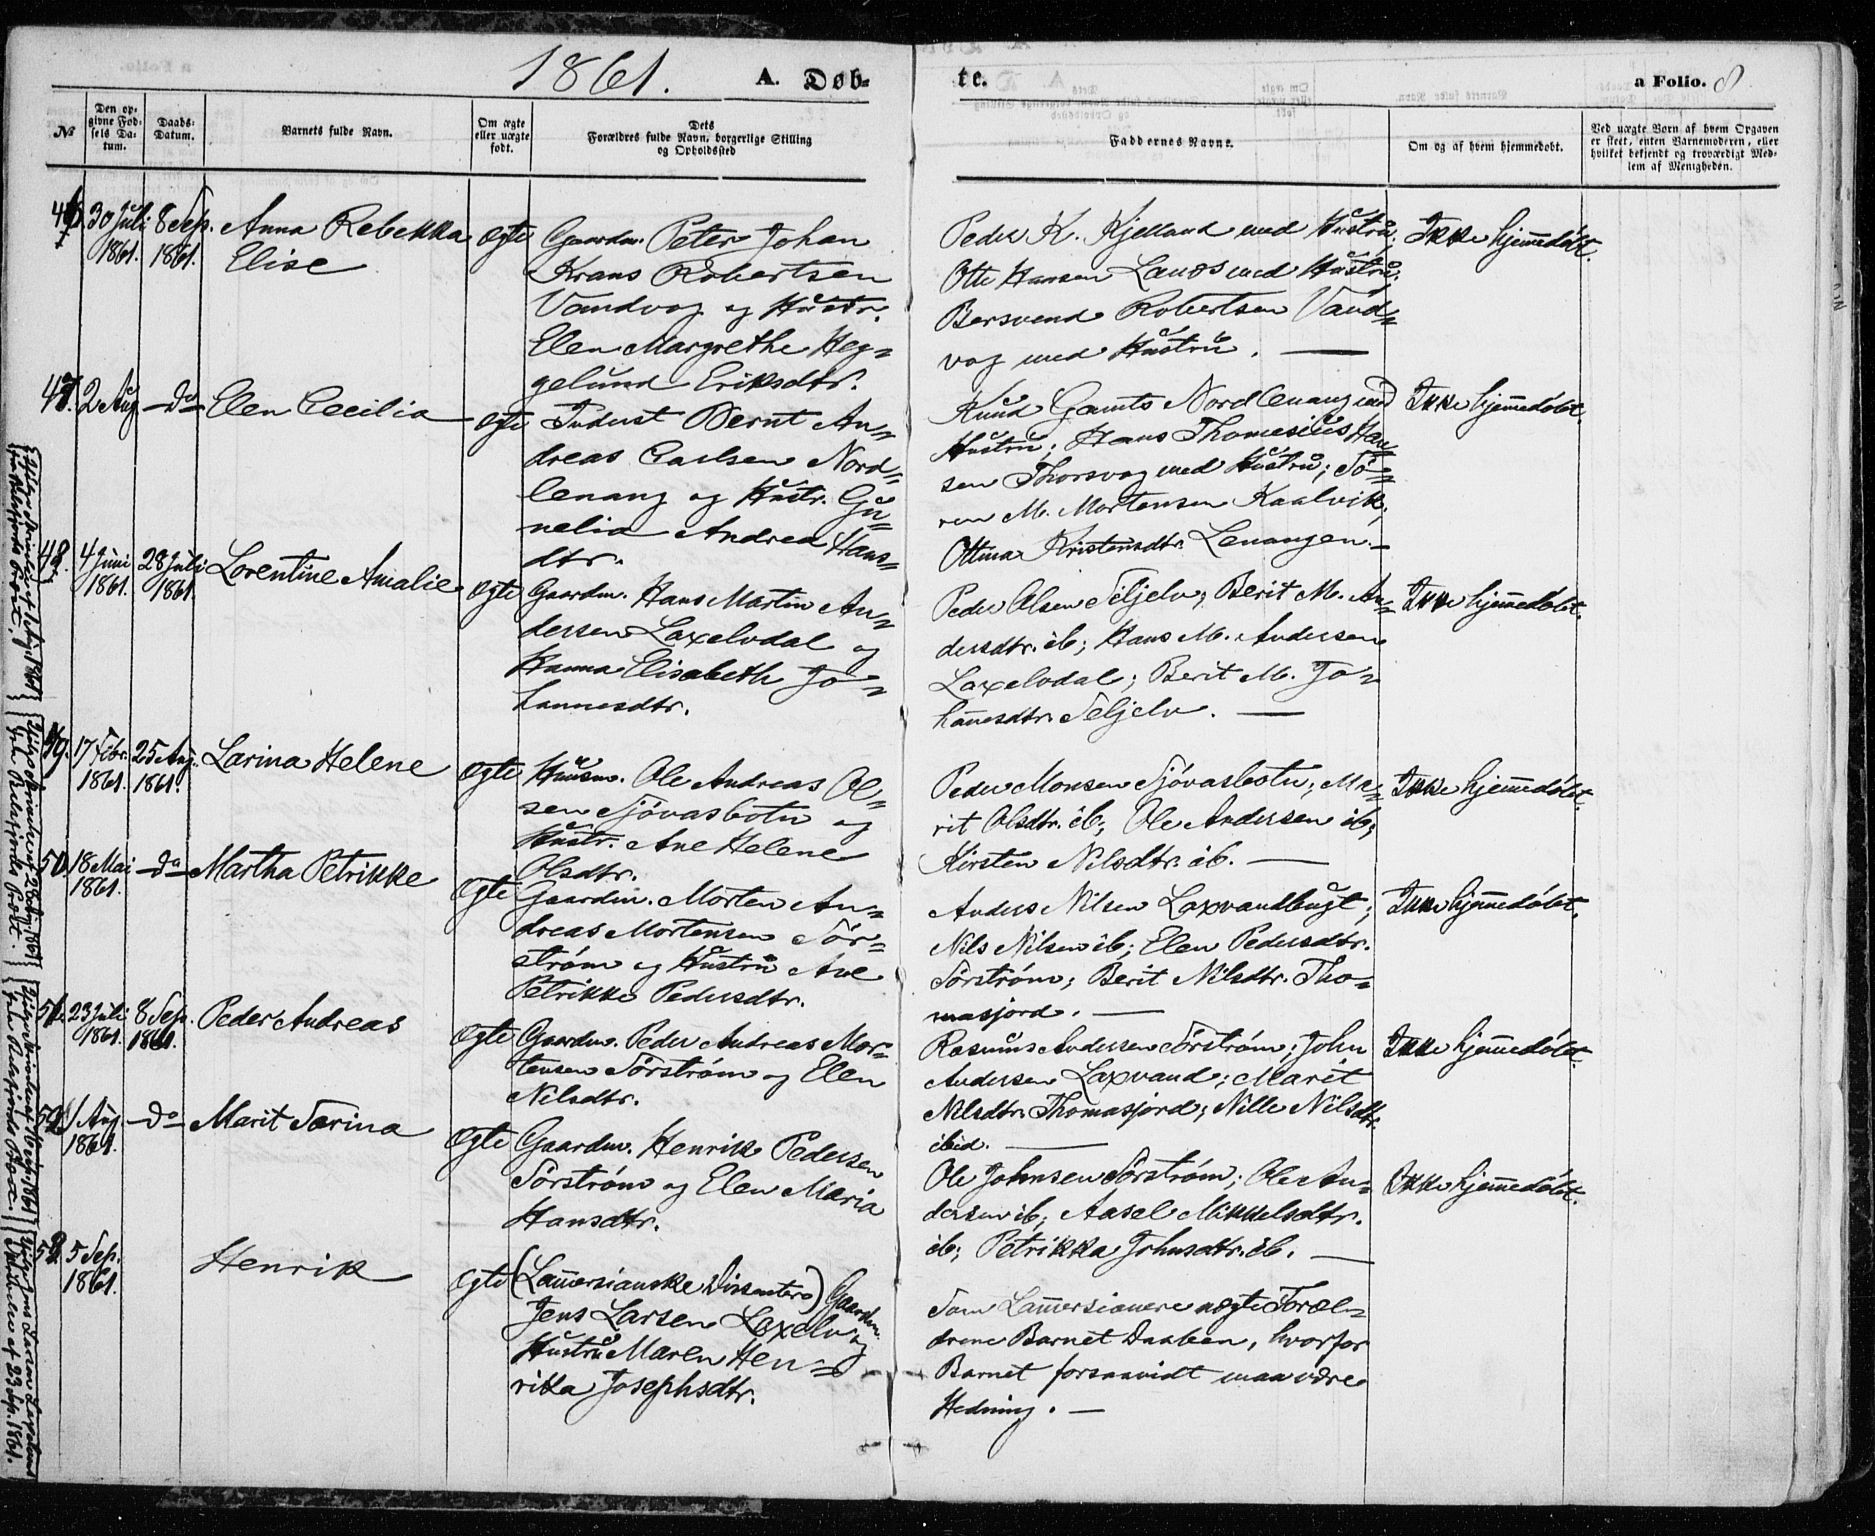 1861. A. Døb-
te. a Folio. 8
№
Den op-
givne Fød-
sels Da-
tum.
Daabs-
Datum.
Barnets fulde Navn.
Om ægte
eller uægte
født.
Dets
Forældres fulde Navn, borgerlige Stilling
og Opholdssted
Faddernes Navne.
Om og af hvem hjemmedøbt.
Ved uægte Børn af hvem Opgaven
er skeet, enten Barnemoderen, eller
hvilket bekjendt og troværdigt Med-
lem af Menigheden.
46. 30 Juli 8 Sep. Anna Rebekka ægte Gaardm. Peter Johan
1861. 1861. Elise
Krans Robertsen
Vandvog og Hustr.
Elen Margrethe Heg=
gelund Eriksdtr.
Peder K. Kjelland med Hustru; Ikke hjemmedøbt.
Otte Hansen Lanæs med Hustru;
Bersvend Robertsen Vand=
vog med Hustru. —
47. 2 Aug. —Do— Elen Cecilia ægte Inderst Bernt An=
dreas Carlsen Nord=
lenang og Hustr. Gu=
nelia Andrea Hans=
dtr.
Knud Gamts Nordlenang med Ikke hjemmedøbt.
Hustru; Hans Thomesius Han=
sen Thorsvog med Hustru; Sø=
ren M. Mortensen Kaalvik;
Ottina Kristensdtr. Lenangen.—
48. 4 Juni 28 Juli Lorentine Amalie ægte Gaardm. Hans Martin An=
1861. 1861.
dersen Laxelvdal og
Hanna Elisabeth Jo=
hannesdtr.
Peder Olsen Seljelv; Berit M. An= Ikke hjemmedøbt.
dersdtr. ib; Hans M. Andersen
Laxelvdal; Berit M. Jo=
hannesdtr. Seljelv. —
49. 17 Febr. 25 Aug. Larina Helene ægte Huusm. Ole Andreas Ol=
1861. 1861.
sen Sjøvasbotn og
Hustr. Ane Helene
Olsdtr.
Peder Monsen Sjøvasbotn; Ma= Ikke hjemmedøbt.
rit Olsdtr. ib; Ole Andersen ib;
Kirsten Nilsdtr. ib. —
50. 18 Mai —Do— Martha Petrikke ægte Gaardm. Morten An=
1861.
dreas Mortensen Sør=
strøm og Hustru Ane
Petrikke Pedersdtr.
Anders Nilsen Laxvandbugt; Ikke hjemmedøbt.
Nils Nilsen ib; Elen Pedersdtr.
Sørstrøm; Berit Nilsdtr. Tho=
masjord. —
51. 23 Juli 8 Sep. Peder Andreas ægte Gaardm. Peder Andreas Mor=
1861. 1861.
tensen Sørstrøm og Elen
Nilsdtr.
Rasmus Andersen Sørstrøm; John Ikke hjemmedøbt.
Andersen Laxvand; Marit
Nilsdtr. Thomasjord; Nille Nilsdtr.
ibid. —
52. 1 Aug. —Do— Marit Særina ægte Gaardm. Henrik Pedersen
1861.
Sørstrøm og Elen Maria
Hansdtr.
Ole Johnsen Sørstrøm; Ole An= Ikke hjemmedøbt.
dersen ib; Aasel Mikkelsdtr.
ib; Petrikka Johnsdtr. ib. —
53. 5 Sep. Henrik ægte (Lammersianske Dissentere) Gaardm.
1861.
Jens Larsen Laxelv og
Hustru Maren Hen=
rikka Josephsdtr.
Som Lammersianere nægte Foræl=
drene Barnet Daaben, hvorfor
Barnet forsaavidt maa være
Hedning. —